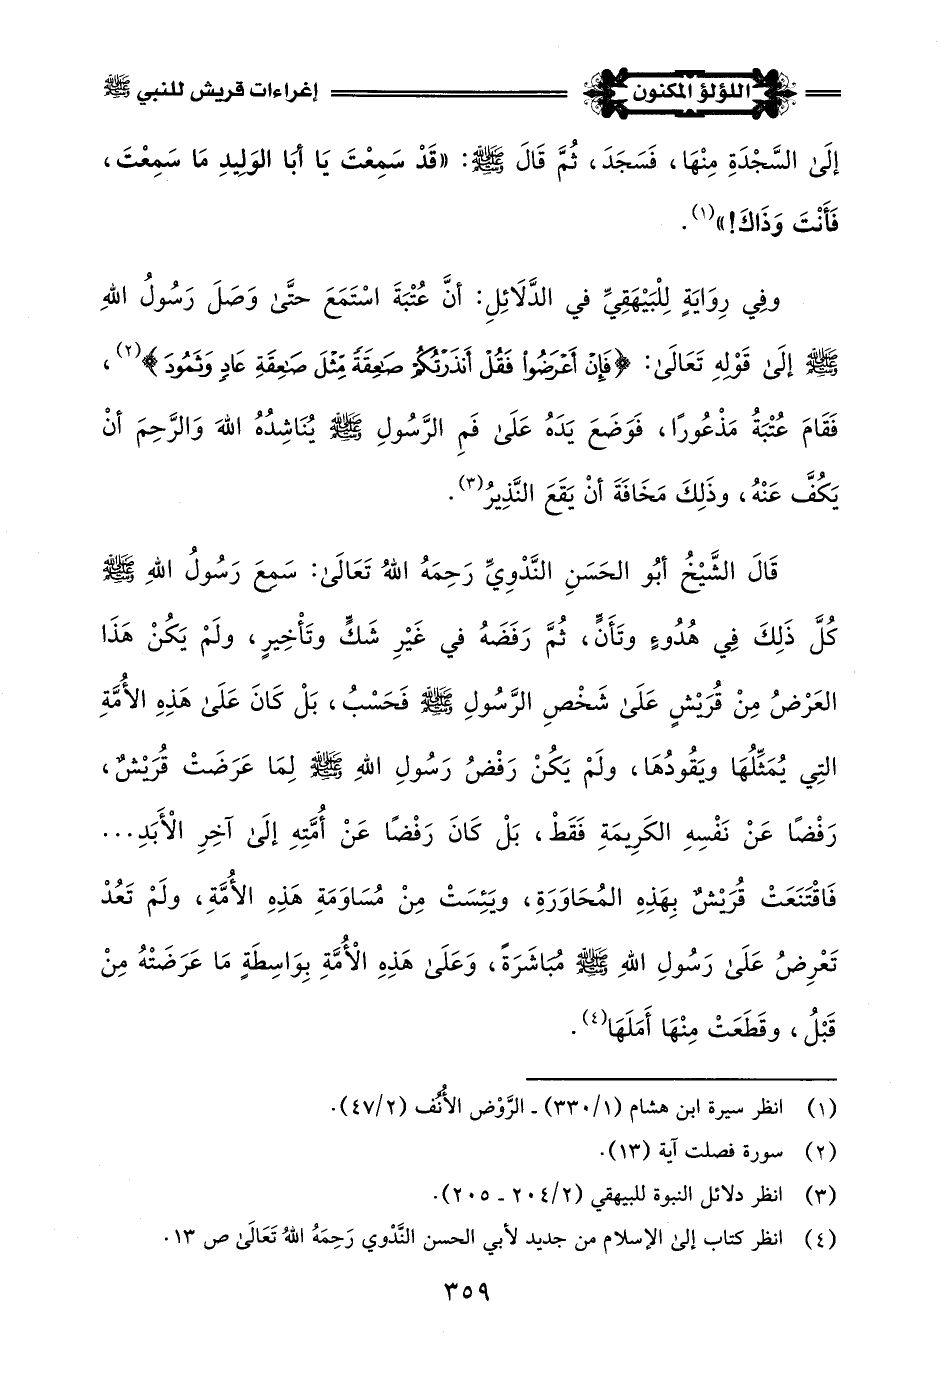 اللؤلؤ المكنون إغراءات قريش للنبي ﷺ
إِلَىٰ السَّجْدَةِ مِنْهَا، فَسَجَدَ، ثُمَّ قَالَ ﷺ: «قَدْ سَمِعْتَ يَا أَبَا الوَلِيدِ مَا سَمِعْتَ،
فَأَنْتَ وَذَاكَ!»(١).
وفِي رِوَايَةٍ لِلْبَيْهَقِيِّ في الدَّلَائِلِ: أنَّ عُتْبَةَ اسْتَمَعَ حتَّىٰ وَصَلَ رَسُولُ اللهِ
ﷺ إِلَىٰ قَوْلِهِ تَعَالَىٰ: ﴿فَإِنْ أَعْرَضُوا۟ فَقُلْ أَنذَرْتُكُمْ صَـٰعِقَةً مِّثْلَ صَـٰعِقَةِ عَادٍ وَثَمُودَ﴾(٢)،
فَقَامَ عُتْبَةُ مَذْعُورًا، فَوَضَعَ يَدَهُ عَلَىٰ فَمِ الرَّسُولِ ﷺ يُنَاشِدُهُ اللهَ وَالرَّحِمَ أنْ
يَكُفَّ عَنْهُ، وذَلِكَ مَخَافَةَ أنْ يَقَعَ النَّذِيرُ(٣).
قَالَ الشَّيْخُ أبُو الحَسَنِ النَّدْوِيِّ رَحِمَهُ اللهُ تَعَالَىٰ: سَمِعَ رَسُولُ اللهِ ﷺ
كُلَّ ذَلِكَ فِي هُدُوءٍ وتَأَنٍّ، ثُمَّ رَفَضَهُ في غَيْرِ شَكٍّ وتَأْخِيرٍ، ولَمْ يَكُنْ هَذَا
العَرْضُ مِنْ قُرَيْشٍ عَلَىٰ شَخْصِ الرَّسُولِ ﷺ فَحَسْبُ، بَلْ كَانَ عَلَىٰ هَذِهِ الأُمَّةِ
التِي يُمَثِّلُهَا ويَقُودُهَا، ولَمْ يَكُنْ رَفْضُ رَسُولِ اللهِ ﷺ لِمَا عَرَضَتْ قُرَيْشٌ،
رَفْضًا عَنْ نَفْسِهِ الكَرِيمَةِ فَقَطْ، بَلْ كَانَ رَفْضًا عَنْ أُمَّتِهِ إلَىٰ آخِرِ الْأَبَدِ...
فَاقْتَنَعَتْ قُرَيْشٌ بِهَذِهِ المُحَاوَرَةِ، ويَئِسَتْ مِنْ مُسَاوَمَةِ هَذِهِ الأُمَّةِ، ولَمْ تَعُدْ
تَعْرِضُ عَلَىٰ رَسُولِ اللهِ ﷺ مُبَاشَرَةً، وَعَلَىٰ هَذِهِ الْأُمَّةِ بِوَاسِطَةٍ مَا عَرَضَتْهُ مِنْ
قَبْلُ، وقَطَعَتْ مِنْهَا أَمَلَهَا(٤).
(١) انظر سيرة ابن هشام (٣٣٠/١) - الرَّوْض الأُنُف (٤٧/٢).
(٢) سورة فصلت آية (١٣).
(٣) انظر دلائل النبوة للبيهقي (٢٠٤/٢ - ٢٠٥).
(٤) انظر كتاب إلىٰ الإسلام من جديد لأبي الحسن النَّدْوي رَحِمَهُ اللهُ تَعَالَىٰ ص ١٣.
٣٥٩